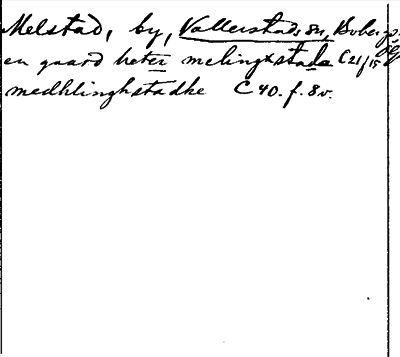 Melstad, by, Vallerstads sn, Bobergs
en gaard heter melingxstada C 21/15
medhlinghstadhe C 40. f. 8v.